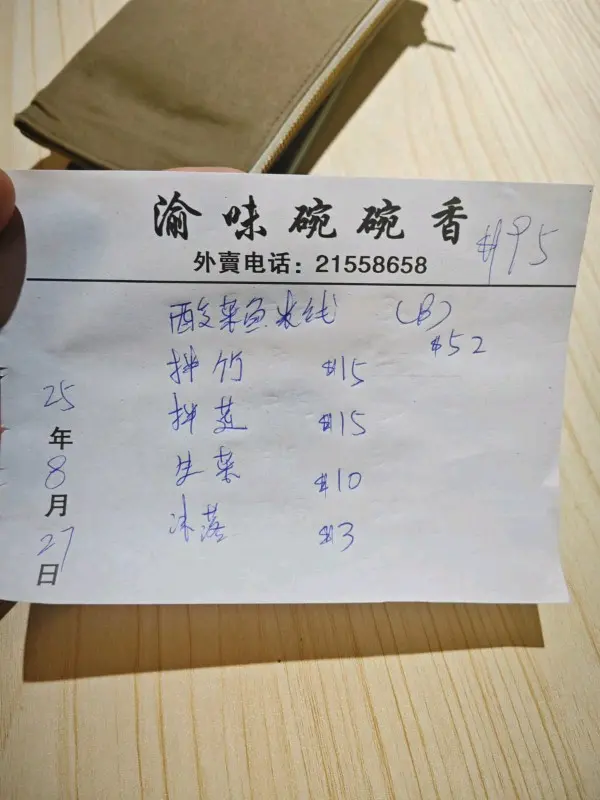 渝味碗碗香
$95
外賣电话：21558658
酸菜鱼米线 (B)
$52
拌竹 $15
拌 $15
生菜 $10
冻 $3
25
年
8
月
27
日